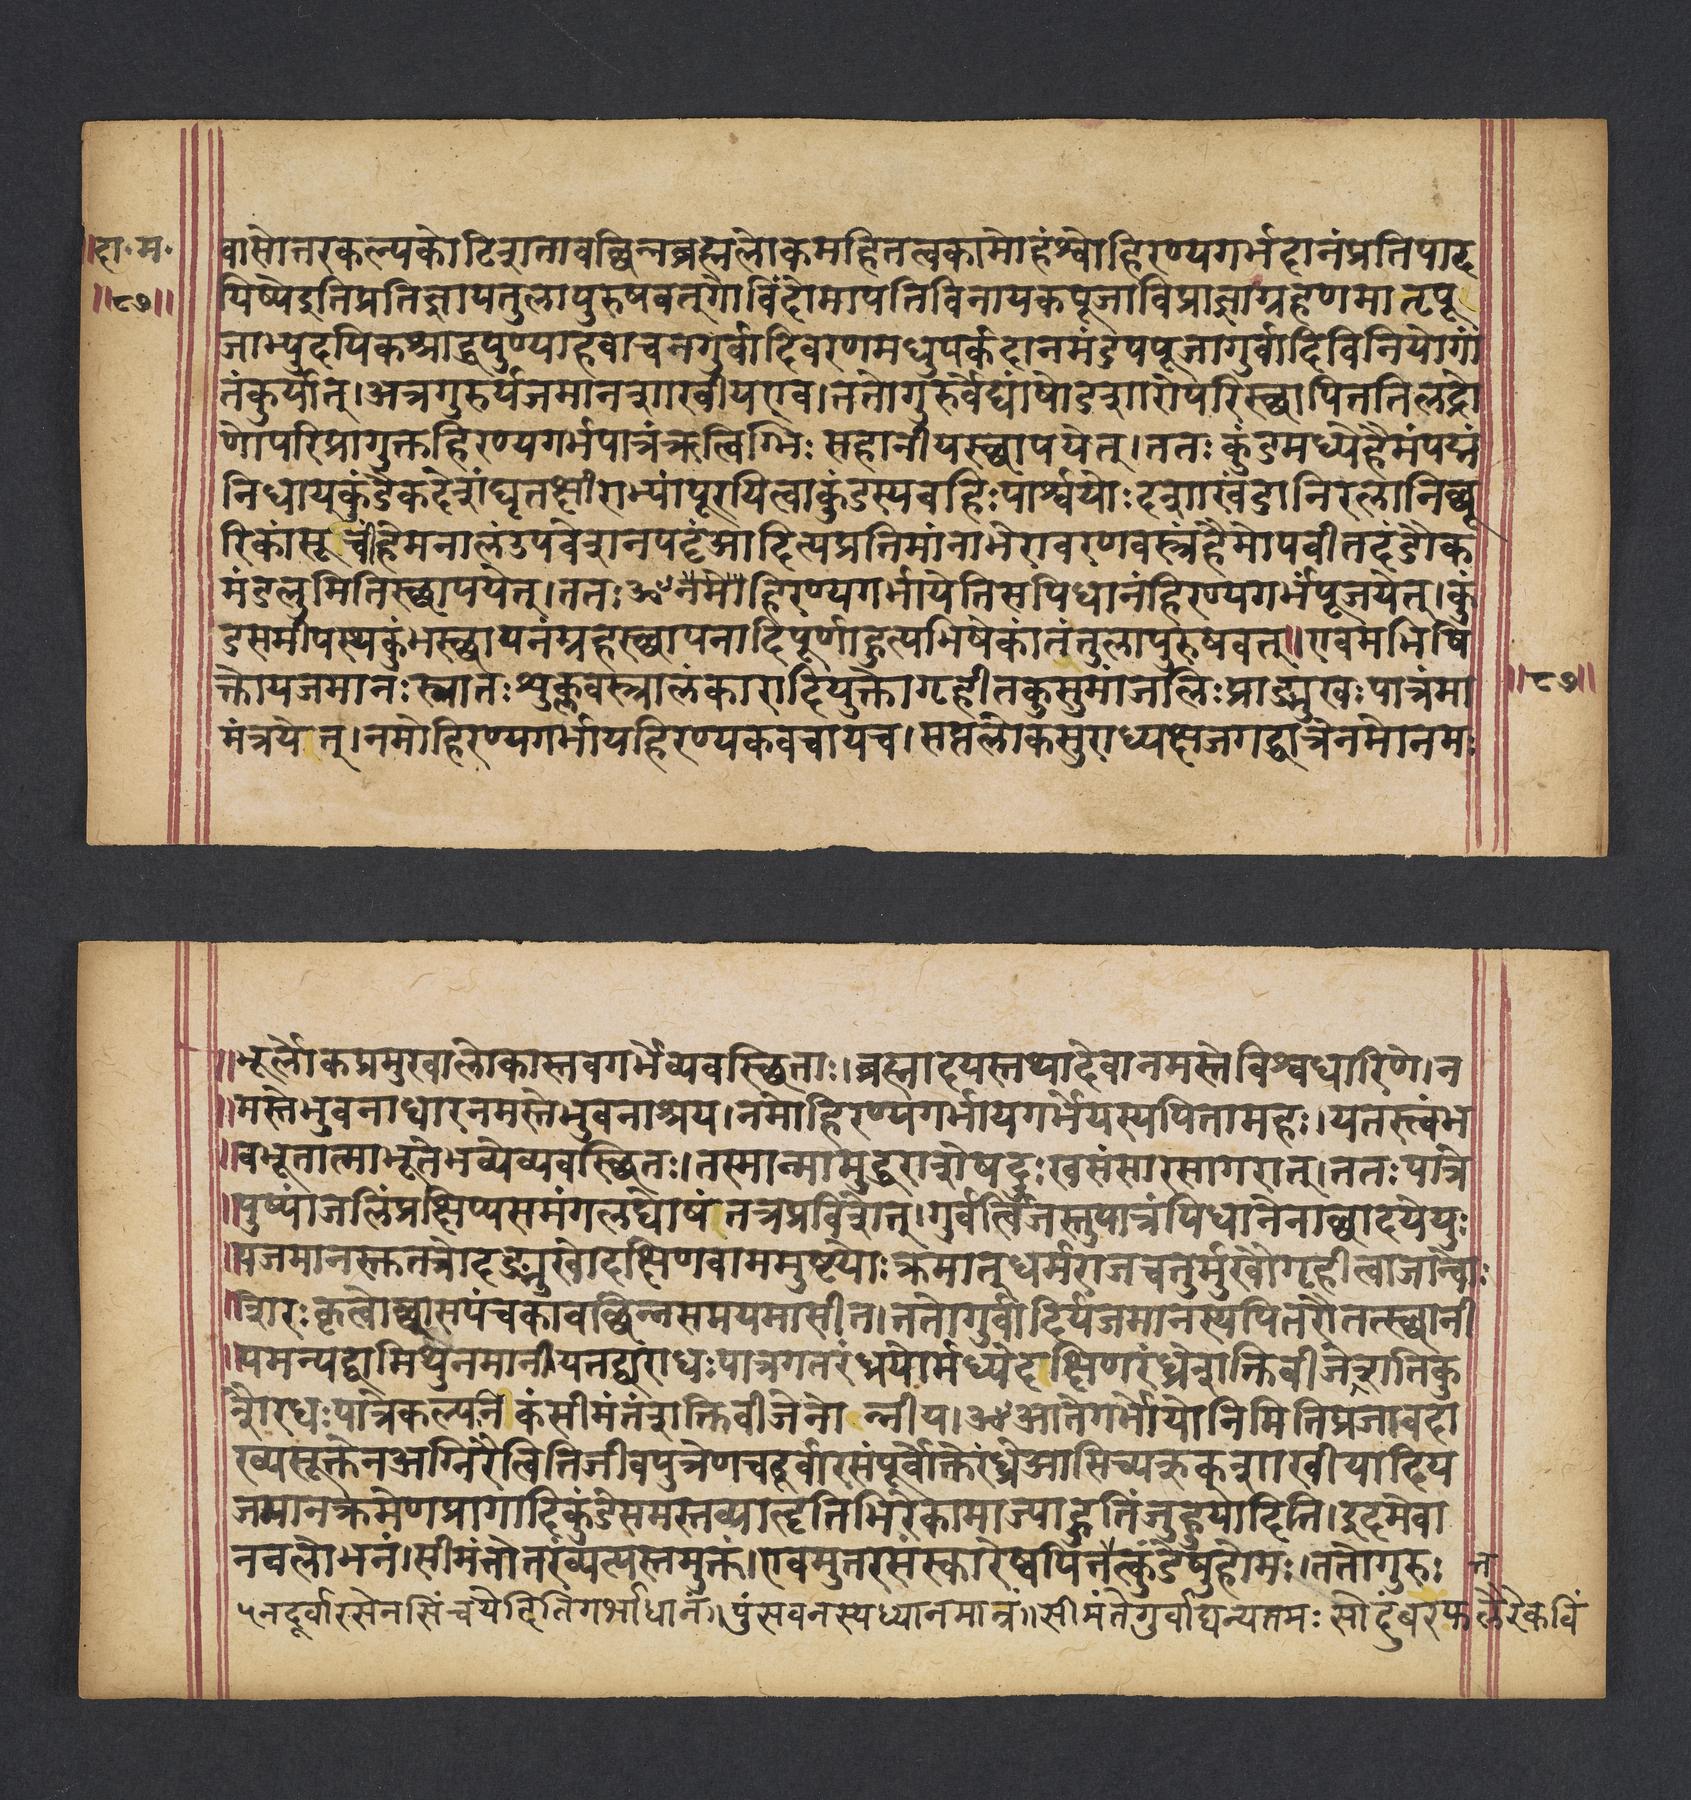 ॥दा॰म॰
॥८७॥
वासोत्तरकल्पकोटिशतावच्छिन्नब्रह्मलोकमहितत्वकामोहंश्वोहिरण्यगर्भदानंप्रतिपाद
यिष्येइतिप्रतिज्ञायतुलापुरुषवत्गोविंदोमापतिविनायकपूजाविप्राज्ञाग्रहणमातृपू
जाभ्युदयिकश्राद्धपुण्याहवाचनगुर्वादिवरणमधुपर्कदानमंडपपूजागुर्वादिविनियोगां
तंकुर्यात्।अत्रगुरुर्यजमानशाखीयएव।ततोगुरुर्वेद्यांषोडशारोपरिस्छापिततिलद्रो
णोपरिप्रागुक्तहिरण्यगर्भपात्रंऋत्विग्भिः सहानीयस्छापयेत्।ततः कुंडमध्येहैमंपद्मं
निधायकुंडैकदेशंघृतक्षीराभ्यांपूरयित्वाकुंडस्यबहिःपार्श्वयोःदशखंडानिरत्नानिछू
रिकांसूचींहेमनालंउपवेशनपट्टंआदित्यप्रतिमांनाभेरावरणवस्त्रंहैमोपवीतदंडौक
मंडलुमितिस्छापयेत्।ततःॐनमोहिरण्यगर्भायेतिसपिधानंहिरण्यगर्भंपूजयेत्।कुं
डसमीपस्थकुंभस्छापनंग्रहस्छापनादिपूर्णाहुत्यभिषेकांतंतुलापुरुषवत्॥एवमभिषि
क्तोयजमानःस्नातःशुक्लवस्त्रालंकारादियुक्तोगृहीतकुसुमांजलिःप्राङ्मुखःपात्रंमा
मंत्रयेत्।नमोहिरण्यगर्भायहिरण्यकवचायच।सप्तलोकसुराध्यक्षजगद्धात्रेनमोनमः
॥८७॥
॥भूर्लोकप्रमुखालोकास्तवगर्भेव्यवस्छिताः।ब्रह्मादयस्तथादेवानमस्तेविश्वधारिणे।न
॥मस्तेभुवनाधारनमस्तेभुवनाश्रय।नमोहिरण्यगर्भायगर्भेयस्यपितामहः।यतस्त्वंभ
॥वभूतात्माभूतेभव्येव्यवस्छितः।तस्मान्मामुद्धराशेषदुःखसंसारसागरात्।ततःपात्रे
॥पुष्पांजलिंप्रक्षिप्यसमंगलघोषंतत्रप्रविशेत्।गुर्वर्त्विजस्तुपात्रंपिधानेनाछादयेयुः
॥यजमानस्तत्रोदङ्मुखोदक्षिणवाममुष्ट्योःक्रमात्धर्मराजचतुर्मुखौगृहीत्वाजान्वोः
॥शिरःकृत्वोछ्वासपंचकावछिन्नसमयमासीत।ततोगुर्वादिर्यजमानस्यपितरौतत्स्छानी
॥यमन्यद्वामिथुनमानीयतद्द्वाराधःपात्रगतरंध्रयोर्मध्येदक्षिणरंध्रेशक्तिबीजेशतिकु
शैरधःपात्रेकल्पनेकंसीमंतंशक्तिबीजेनोन्नीय।ॐआतेगर्भोयोनिमितिप्रजावदा
ख्यसूक्तेनअग्निरैत्वितिजीवपुत्रेणचदूर्वारसंपूर्वोक्तेरंध्रेआसिच्यऋक्शाखीयादिय
जमानक्रमेणप्रागादिकुंडेसमस्तव्याहृतिभिरेकामाज्याहुतिंजुहुयादिति।इदमेवा
नवलोभनं।सीमंतोत्तरंव्यत्यस्तमुक्तं।एवमुत्तरसंस्कारेष्वपितत्कुंडेषुहोमः।ततोगुरुः
५नदूर्वारसेनसिंचयेदितिगर्भाधानं॥पुंसवनस्यध्यानमात्रं॥सीमंतेगुर्वाद्यन्यतमः सोदुंबरफलैरेकविं